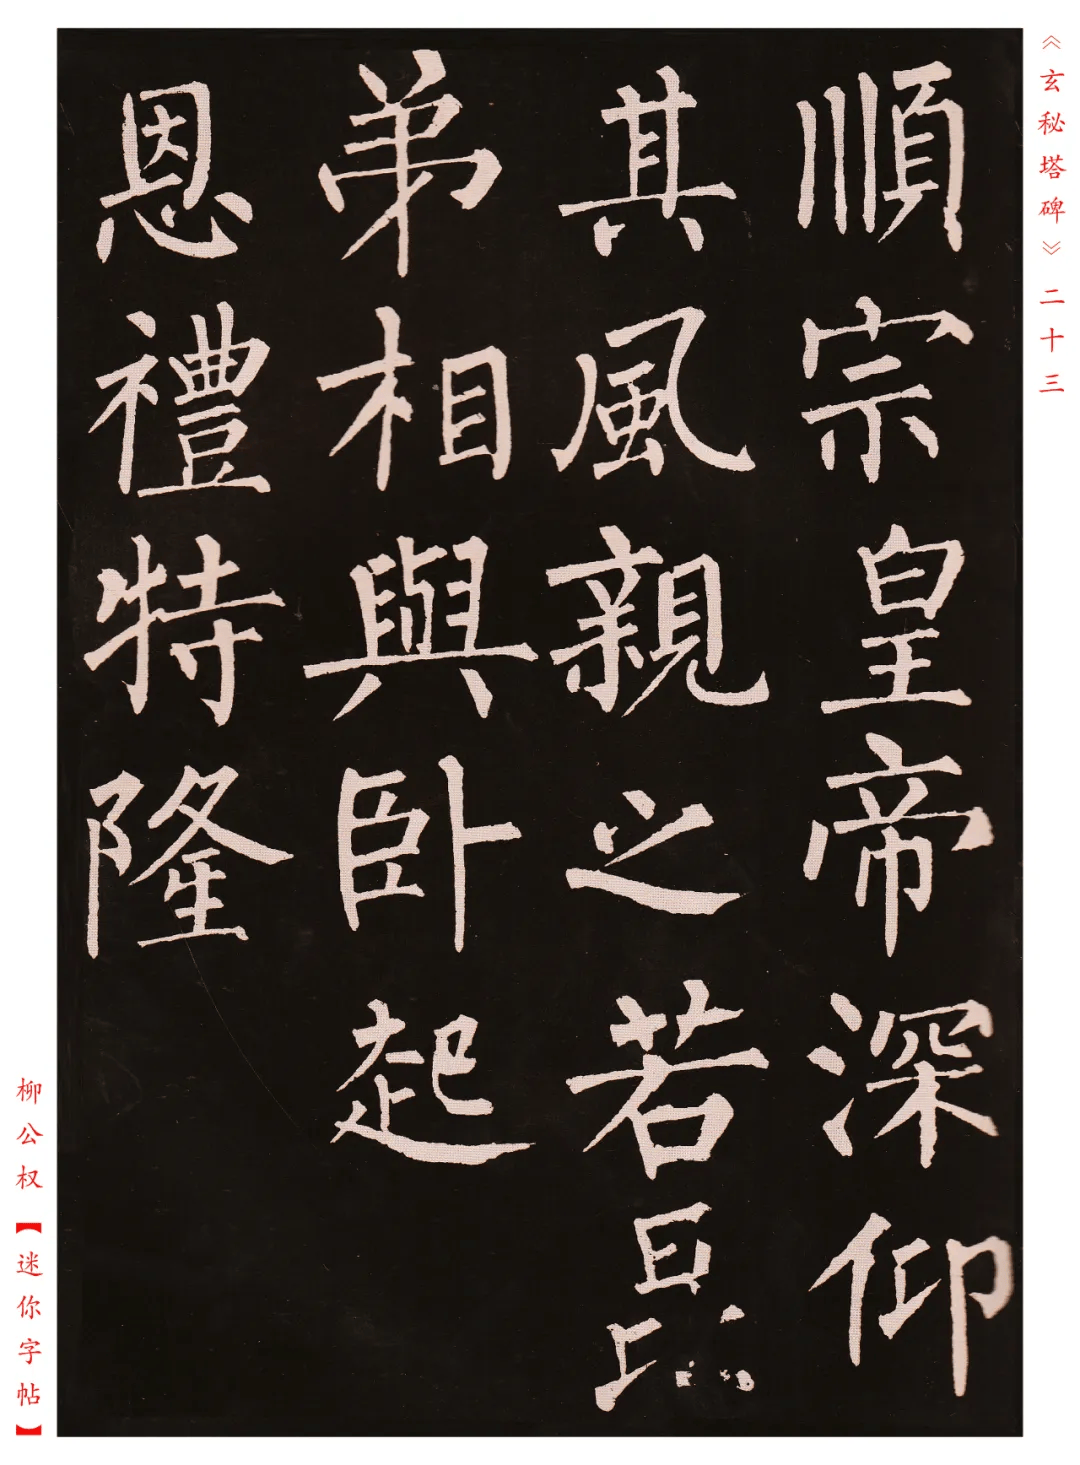 《玄秘塔碑》二十三
順宗皇帝深仰
其風親之若昆
弟相與臥起
恩禮特隆
柳公权【迷你字帖】